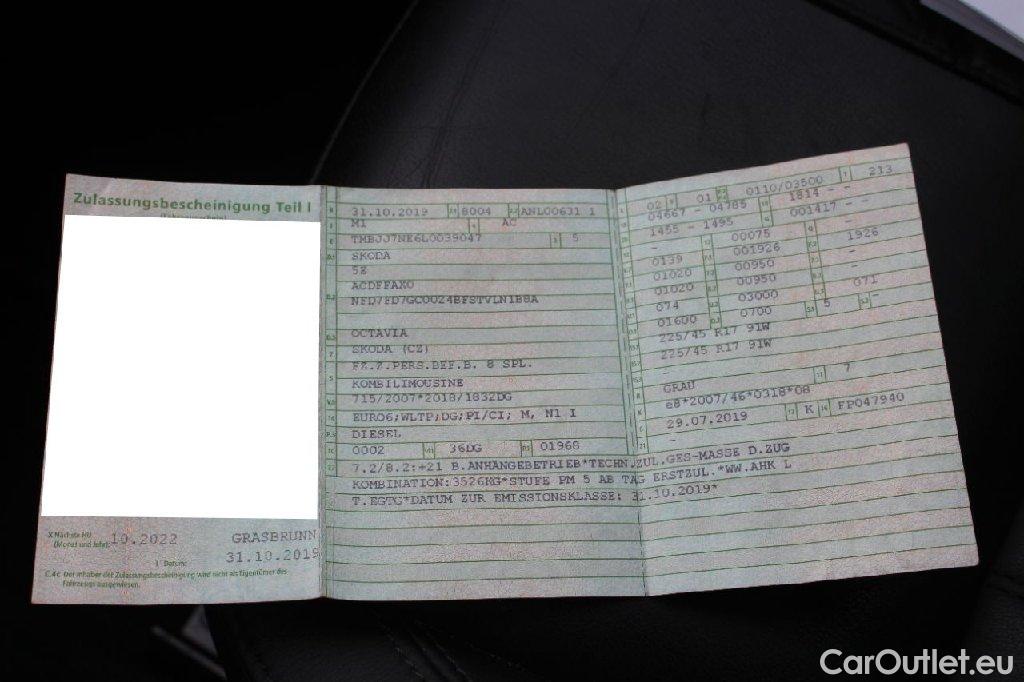 Zulassungsbescheinigung Teil I
X Nächste HU
(Monat und Jahr) 10.2022
GRASBRUNN
I Datum: 31.10.2019
C.4c Der Inhaber der Zulassungsbescheinigung wird nicht als Eigentümer des
Fahrzeugs ausgewiesen.
31.10.2019 8004 ANL00631 1
M1 AC
TMBJJ7NE6L0039047 5
SKODA
5E
ACDFFAX0
OCTAVIA
SKODA (CZ)
FZ.Z.PERS.BEF.B. 8 SPL.
KOMBILIMOUSINE
715/2007*2018/1832DG
EURO6;WLTP;DG;PI/CI; M, N1 I
DIESEL
0002 36DG 01968
02 01 0110/03500 213
04667 - 04785 1814 - -
1455 - 1495 001417 - -
- 00075 1926
0139 001926 -
01020 00950 -
01020 00950 071
074 03000 -
01600 0700 5 -
225/45 R17 91W
225/45 R17 91W
-
GRAU 7
e8*2007/46*0318*08
29.07.2019 K FP047940
-
7.2/8.2:+21 B.ANHÄNGEBETRIEB*TECHN.ZUL.GES-MASSE D.ZUG
KOMBINATION:3526KG*STUFE PM 5 AB TAG ERSTZUL.*WW.AHK L
T.EGTG*DATUM ZUR EMISSIONSKLASSE: 31.10.2019*
CarOutlet.eu